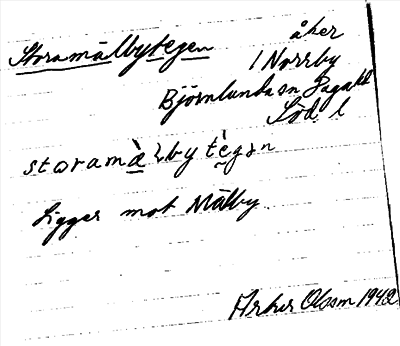 Stora mälbytegen
åker
1 Norrby
Björnlunda sn Daga hd
Söd. l
storamàlby tègən
Ligger mot Mälby.
Arthur Olsson 1942